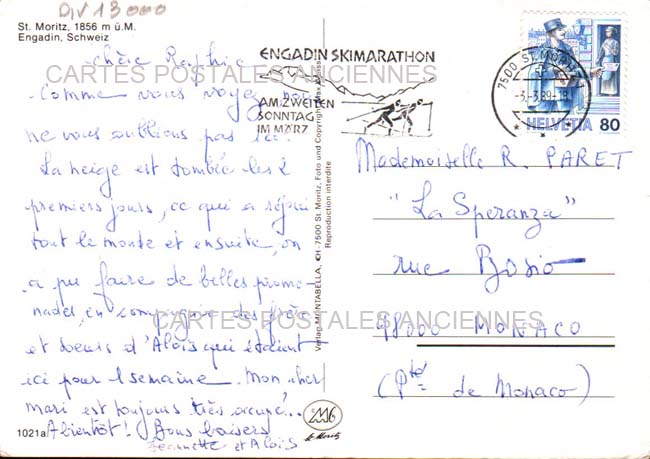 DIV 13000
St. Moritz, 1856 m ü.M.
Engadin, Schweiz
chère Raphie
CARTES POSTALES ANCIENNES
Comme vous voyez nous
ne vous oublions pas ici.
La neige est tombée les 2
premiers jours, ce qui a réjoui
tout le monde et ensuite, on
a pu faire de belles prome-
nades, en compagnie des frères
CARTES POSTALES ANCIENNES
et soeurs d'Aloïs qui étaient
ici pour 1 semaine. Mon cher
mari est toujours très occupé!..
1021a
A bientôt! Bons baisers
Jeannette et Aloïs
Verlag MONTABELLA, CH-7500 St. Moritz, Foto und Copyright Max
Reproduction interdite
MB
St. Moritz
ENGADIN SKIMARATHON
AM ZWEITEN
SONNTAG
IM MÄRZ
7500 ST. MORITZ
-3.-3.89-18
HELVETIA 80
Mademoiselle R. PARET
"La Speranza"
rue Bosio
98000 MONACO
(Pté de Monaco)